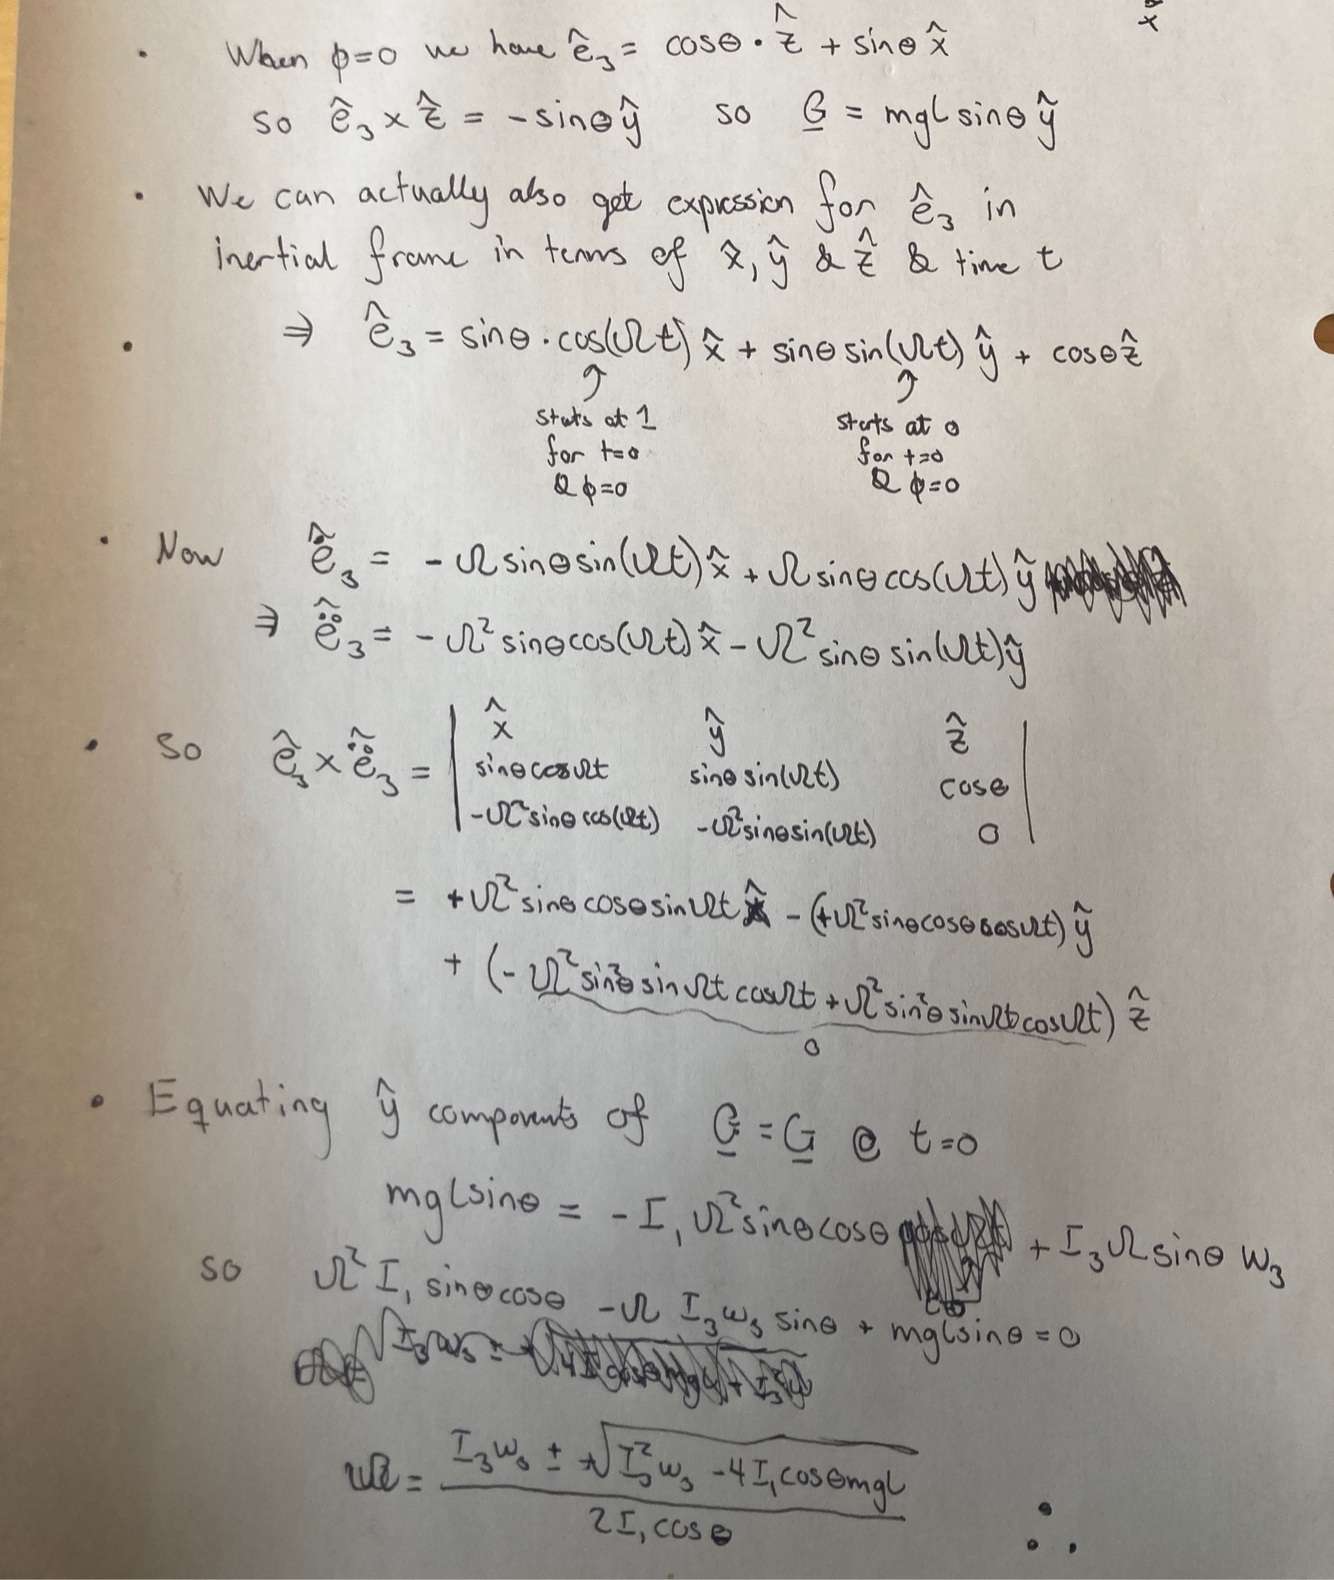 x
· When ϕ=0 we have ê₃ = cosθ · ẑ + sinθ x̂
so ê₃ × ẑ = -sinθ ŷ so G = mgl sinθ ŷ
· We can actually also get expression for ê₃ in
inertial frame in terms of x̂, ŷ & ẑ & time t
· ⇒ ê₃ = sinθ · cos(Ωt) x̂ + sinθ sin(Ωt) ŷ + cosθ ẑ
starts at 1 starts at 0
for t=0 for t=0
& ϕ=0 & ϕ=0
· Now ė̂₃ = -Ω sinθ sin(Ωt) x̂ + Ω sinθ cos(Ωt) ŷ
⇒ ë̂₃ = -Ω² sinθ cos(Ωt) x̂ - Ω² sinθ sin(Ωt) ŷ
· So ê₃ × ë̂₃ = | x̂ ŷ ẑ |
sinθ cosΩt sinθ sin(Ωt) cosθ
-Ω² sinθ cos(Ωt) -Ω² sinθ sin(Ωt) 0
= +Ω² sinθ cosθ sinΩt x̂ - (+Ω² sinθ cosθ cosΩt) ŷ
+ (-Ω² sin²θ sinΩt cosΩt + Ω² sin²θ sinΩt cosΩt) ẑ
0
· Equating ŷ components of G = G @ t=0
mgl sinθ = -I₁ Ω² sinθ cosθ + I₃ Ω sinθ ω₃
so Ω² I₁ sinθ cosθ - Ω I₃ ω₃ sinθ + mgl sinθ = 0
Ω = I₃ω₃ ± √(I₃² ω₃ - 4 I₁ cosθ mgl)
2 I₁ cosθ
∴